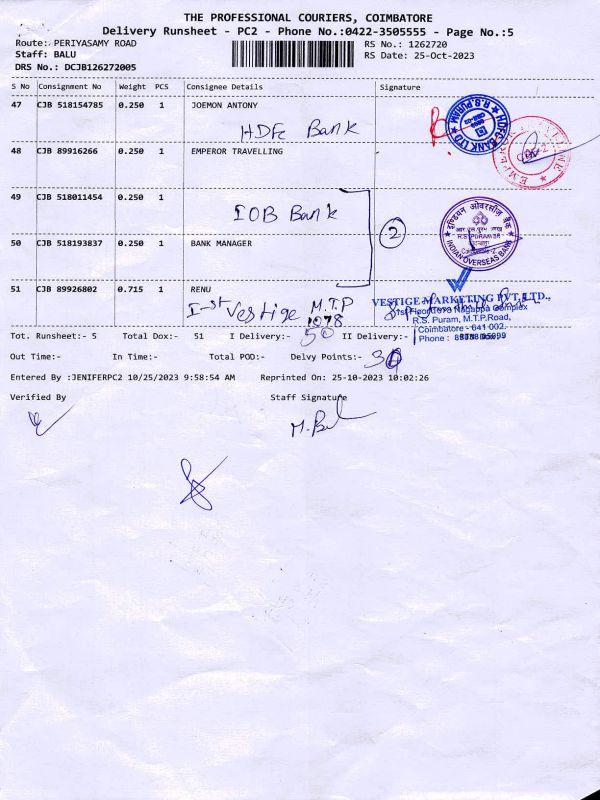 THE PROFESSIONAL COURIERS, COIMBATORE
Delivery Runsheet - PC2 - Phone No.:0422-3505555 - Page No.:5
Route: PERIYASAMY ROAD RS No.: 1262720
Staff: BALU RS Date: 25-Oct-2023
DRS No.: DCJB126272005
S No Consignment No Weight PCS Consignee Details Signature
47 CJB 518154785 0.250 1 JOEMON ANTONY
HDFC Bank
HDFC BANK LTD
R.S.PURAM
48 CJB 89916266 0.250 1 EMPEROR TRAVELLING
49 CJB 518011454 0.250 1
IOB Bank
2
इण्डियन ओवरसीज़ बैंक
INDIAN OVERSEAS BANK
50 CJB 518193837 0.250 1 BANK MANAGER
51 CJB 89926802 0.715 1 RENU
I-st Vestige M.T.P
1078
VESTIGE MARKETING PVT. LTD.,
1st Floor Nagappa Complex
R.S. Puram, M.T.P.Road,
Coimbatore - 641 002.
Phone :
Tot. Runsheet:- 5 Total Dox:- 51 I Delivery:- 50 II Delivery:- 1
Out Time:- In Time:- Total POD:- Delvy Points:-
Entered By :JENIFERPC2 10/25/2023 9:58:54 AM Reprinted On: 25-10-2023 10:02:26
Verified By Staff Signature